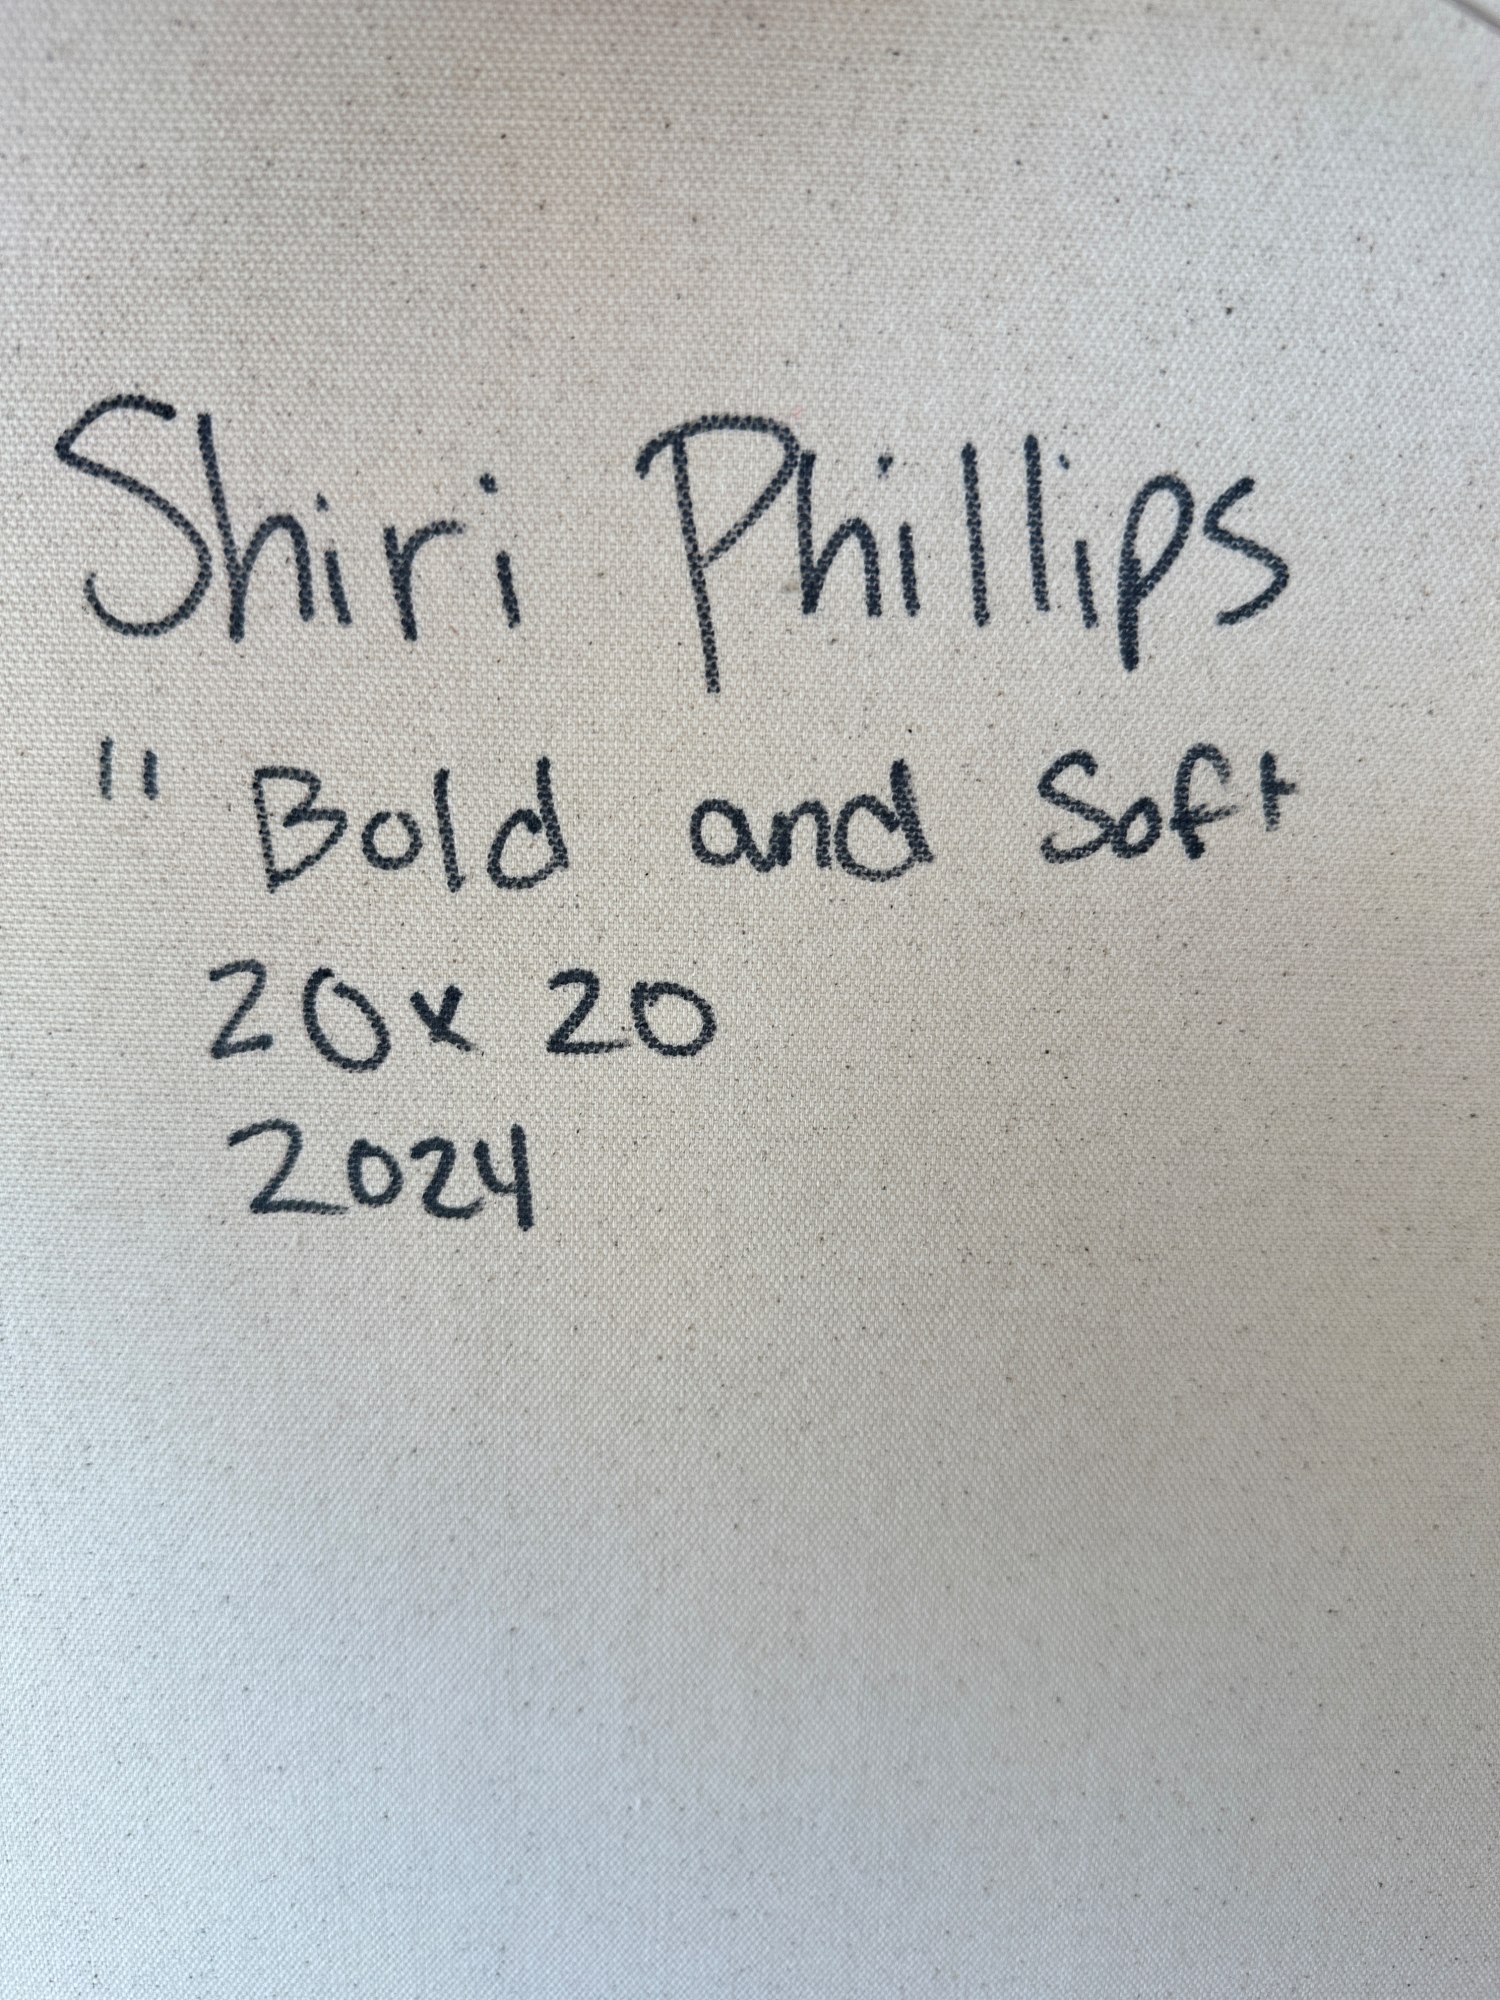 Shiri Phillips
" Bold and Soft
20x20
2024